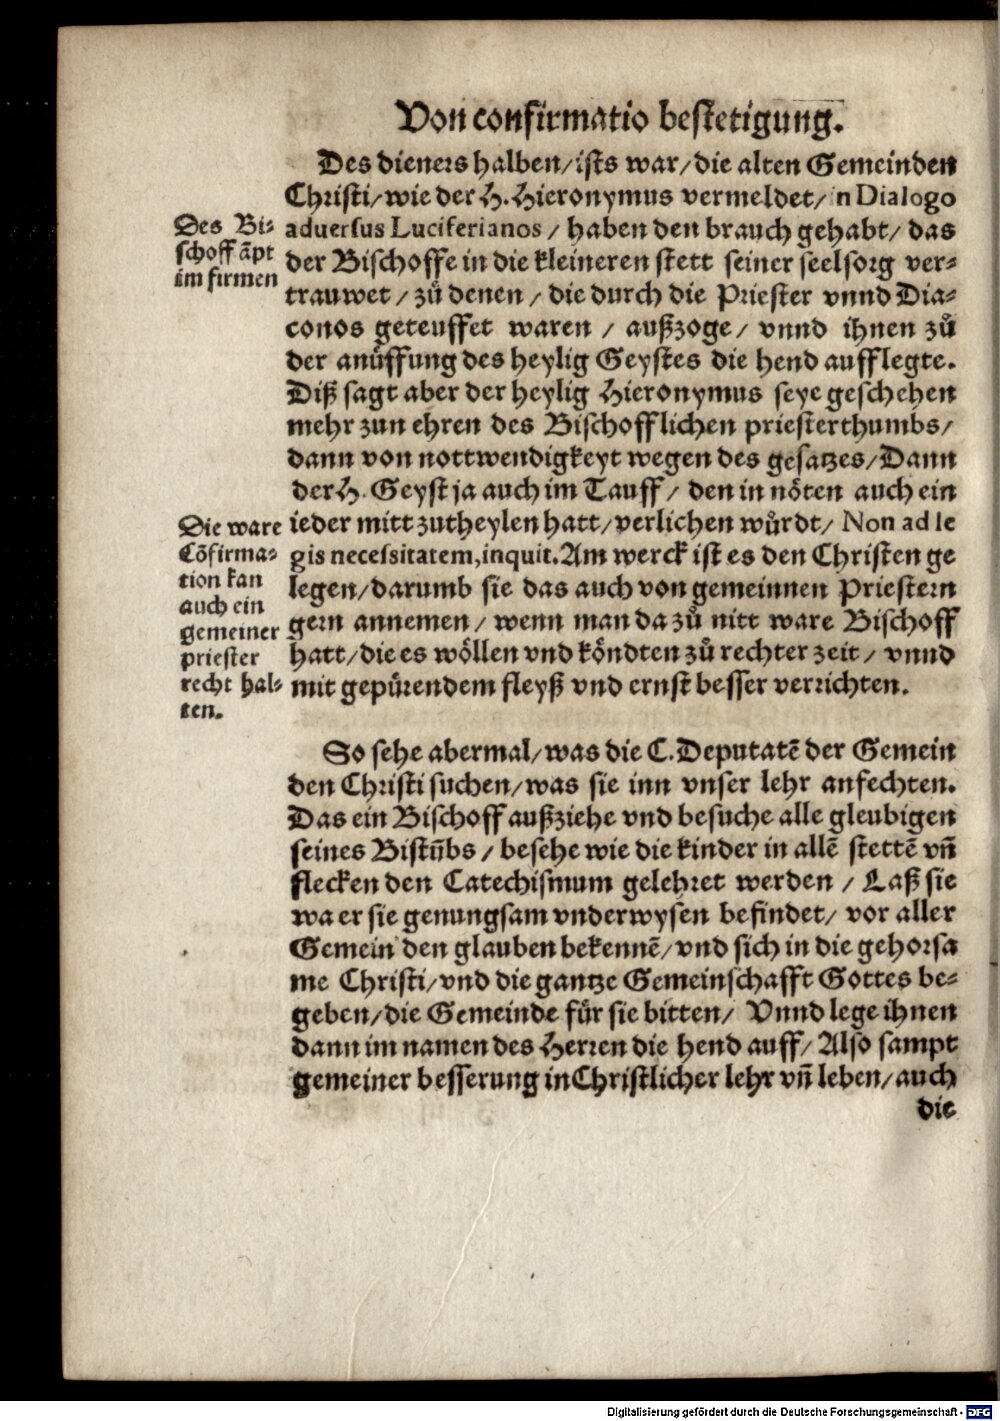 Von confirmatio bestetigung.
Des dieners halben/ists war/die alten Gemeinden
Christi/wie der H. Hieronymus vermeldet/in Dialogo
aduersus Luciferianos / haben den brauch gehabt/ das
der Bischoffe in die kleineren stett seiner seelsorg ver-
trauwet / zů denen / die durch die Priester vnnd Dia-
conos geteuffet waren / außzoge/ vnnd ihnen zů
der anůffung des heylig Geystes die hend aufflegte.
Diß sagt aber der heylig Hieronymus seye geschehen
mehr zun ehren des Bischofflichen priesterthumbs/
dann von nottwendigkeyt wegen des gesatzes/Dann
der H. Geyst ja auch im Tauff/ den in nöten auch ein
ieder mitt zutheylen hatt/verlichen würdt/ Non ad le
gis necessitatem, inquit. Am werck ist es den Christen ge
legen/darumb sie das auch von gemeinnen Priestern
gern annemen/ wenn man da zů nitt ware Bischoff
hatt/die es wöllen vnd köndten zů rechter zeit/ vnnd
mit gepürendem fleyß vnd ernst besser verrichten.
Des Bi-
schoff āpt
im firmen
Die ware
Cōfirma-
tion kan
auch ein
gemeiner
priester
recht hal-
ten.
So sehe abermal/was die C. Deputatē der Gemein
den Christi suchen/was sie inn vnser lehr anfechten.
Das ein Bischoff außziehe vnd besuche alle gleubigen
seines Bistūbs / besehe wie die kinder in allē stettē vn̄
flecken den Catechismum gelehret werden / Laß sie
wa er sie genungsam vnderwysen befindet/ vor aller
Gemein den glauben bekennē/vnd sich in die gehorsa
me Christi/vnd die gantze Gemeinschafft Gottes be-
geben/die Gemeinde für sie bitten/ Vnnd lege ihnen
dann im namen des Herren die hend auff/ Also sampt
gemeiner besserung in Christlicher lehr vn̄ leben/auch
die
Digitalisierung gefördert durch die Deutsche Forschungsgemeinschaft - DFG